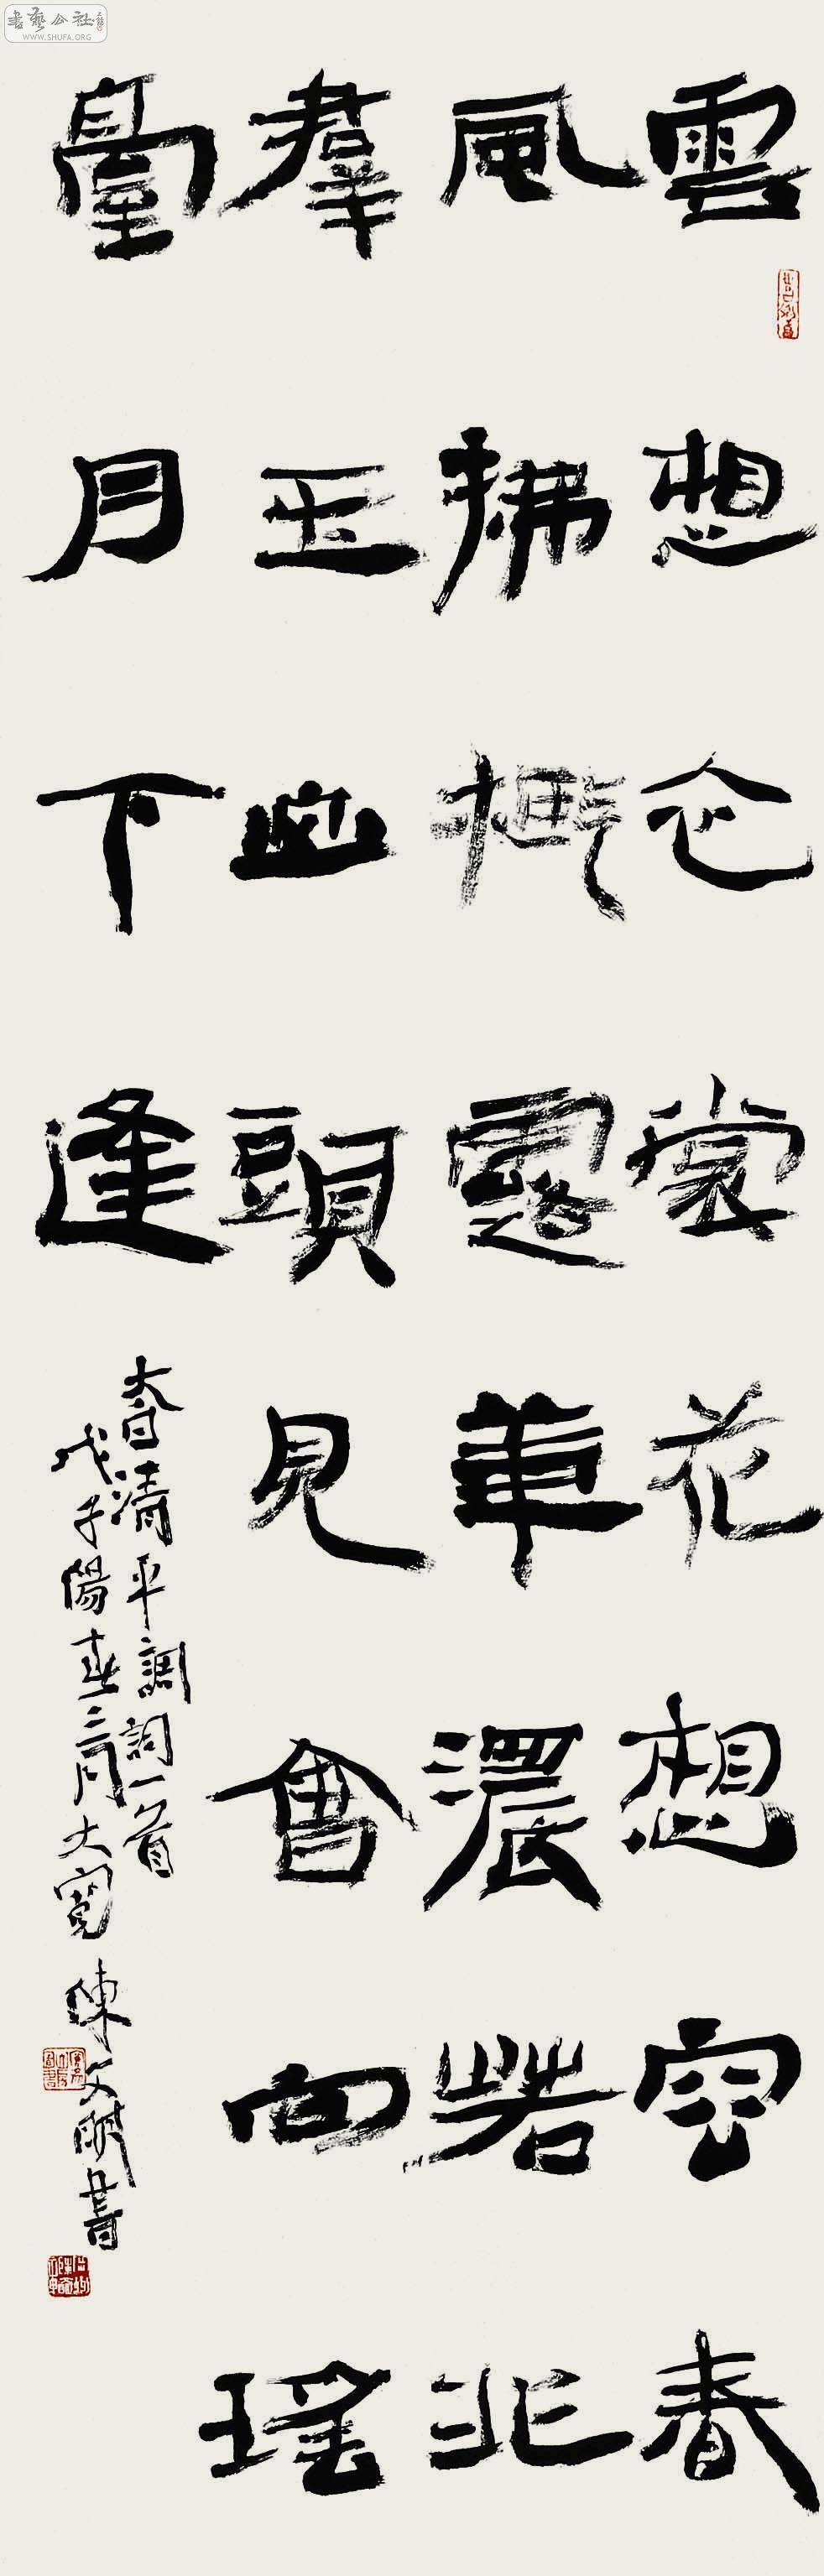 雲想衣裳花想容春
風拂檻露華濃若非
羣玉山頭見會向瑶
臺月下逢
李白清平調詞一首
戊子陽春三月大寬陳文書
書藝公社
WWW.SHUFA.ORG